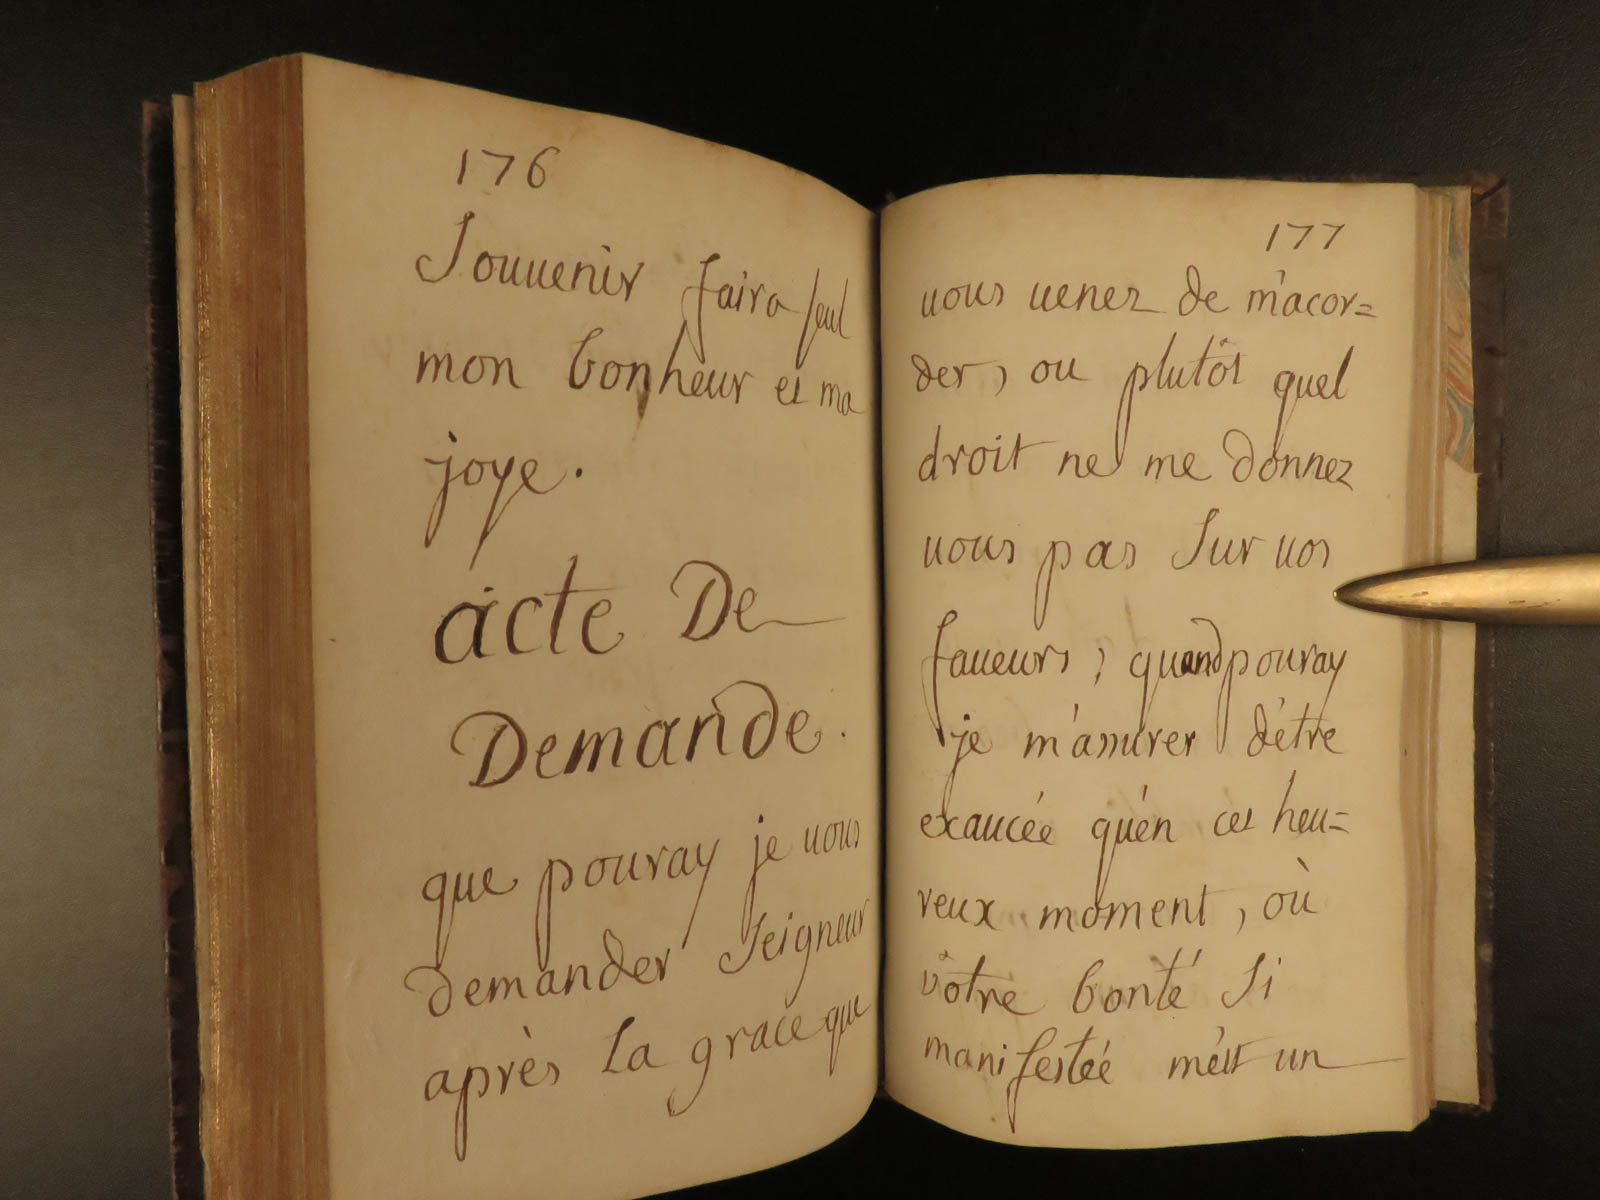 176
Souuenir faira seul
mon bonheur et ma
joye.
acte De
Demande.
que pouray je uous
demander Seigneur
après la grace que
177
uous uenez de m'acor=
der, ou plutôt quel
droit ne me donnez
uous pas Sur uos
faueurs, quand pouray
je m'assurer d'être
exaucée qu'én cet heu=
reux moment, où
vôtre bonté Si
manifestéé m'ést un